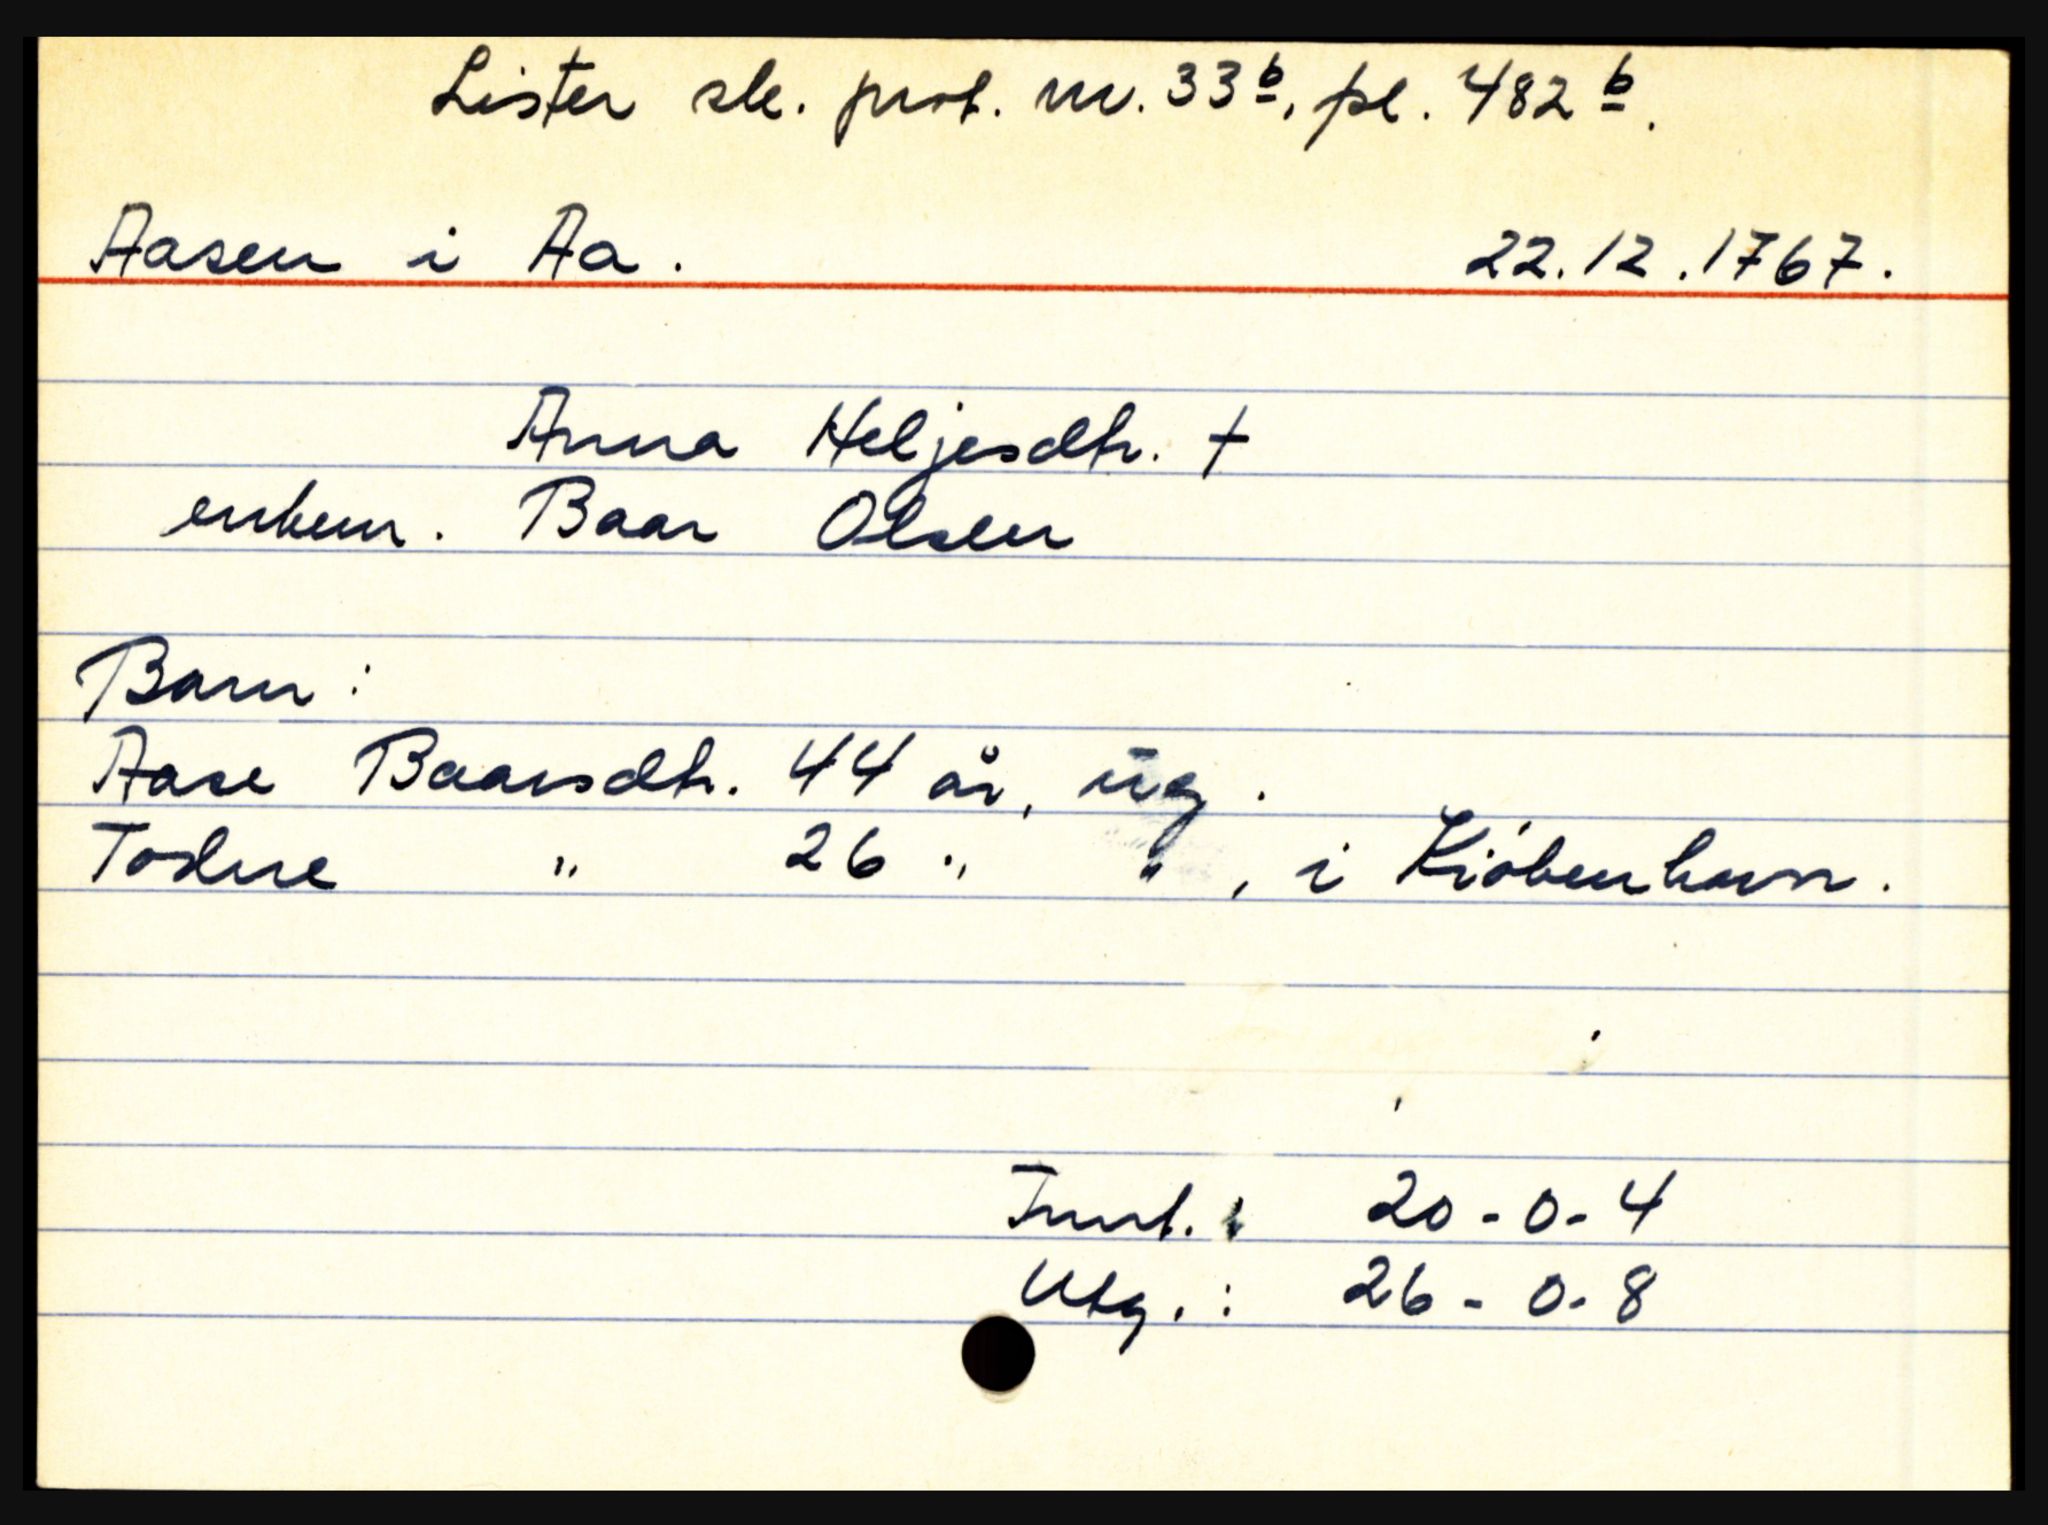 Lister sk. prot. nr. 33b, pl. 482b.
Aasen i Aa. 22.12.1767.
Anna Heljesdtr. †
enkem. Baar Olsen
Barn:
Aase Baarsdtr. 44 år, ug.
Todne " 26 " ", i Kiöbenhavn.
Innt.: 20-0-4
Utg.: 26-0-8